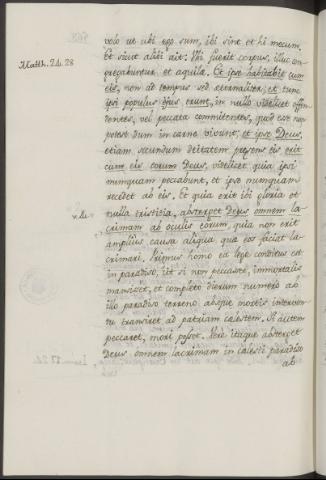 volo ut ubi ego sum, ibi sint et hi mecum.
Et sicut alibi ait: Ubi fuerit corpus, illuc con-
Matth. 24. 28
gregabuntur et aquilæ. Et ipse habitabit cum
eis, non ad tempus sed æternaliter, et tunc
ipsi populus ejus erunt, in nullo videlicet offen-
dentes, vel peccata committentes, quod esse non
potest dum in carne vivunt, et ipse Deus,
etiam secundum deitatem præsens eis erit
cum eis eorum Deus, videlicet quia ipsi
nunquam peccabunt, et ipse nunquam
recedet ab eis. Et quia erit ibi gloria et
nulla tristitia, absterget Deus omnem la-
crimam ab oculis eorum, quia non erit
amplius causa aliqua quæ eos faciat la-
crimari. Primus homo ea lege conditus est
in paradiso, ut si non peccasset, immortalis
mansisset, et completo dierum numero ab
illo paradiso terreno absque mortis interven-
tu transiret ad patriam cælestem. Si autem
peccaret, mori posset. Vere itaque absterget
Deus omnem lacrimam in cælesti paradiso
ab